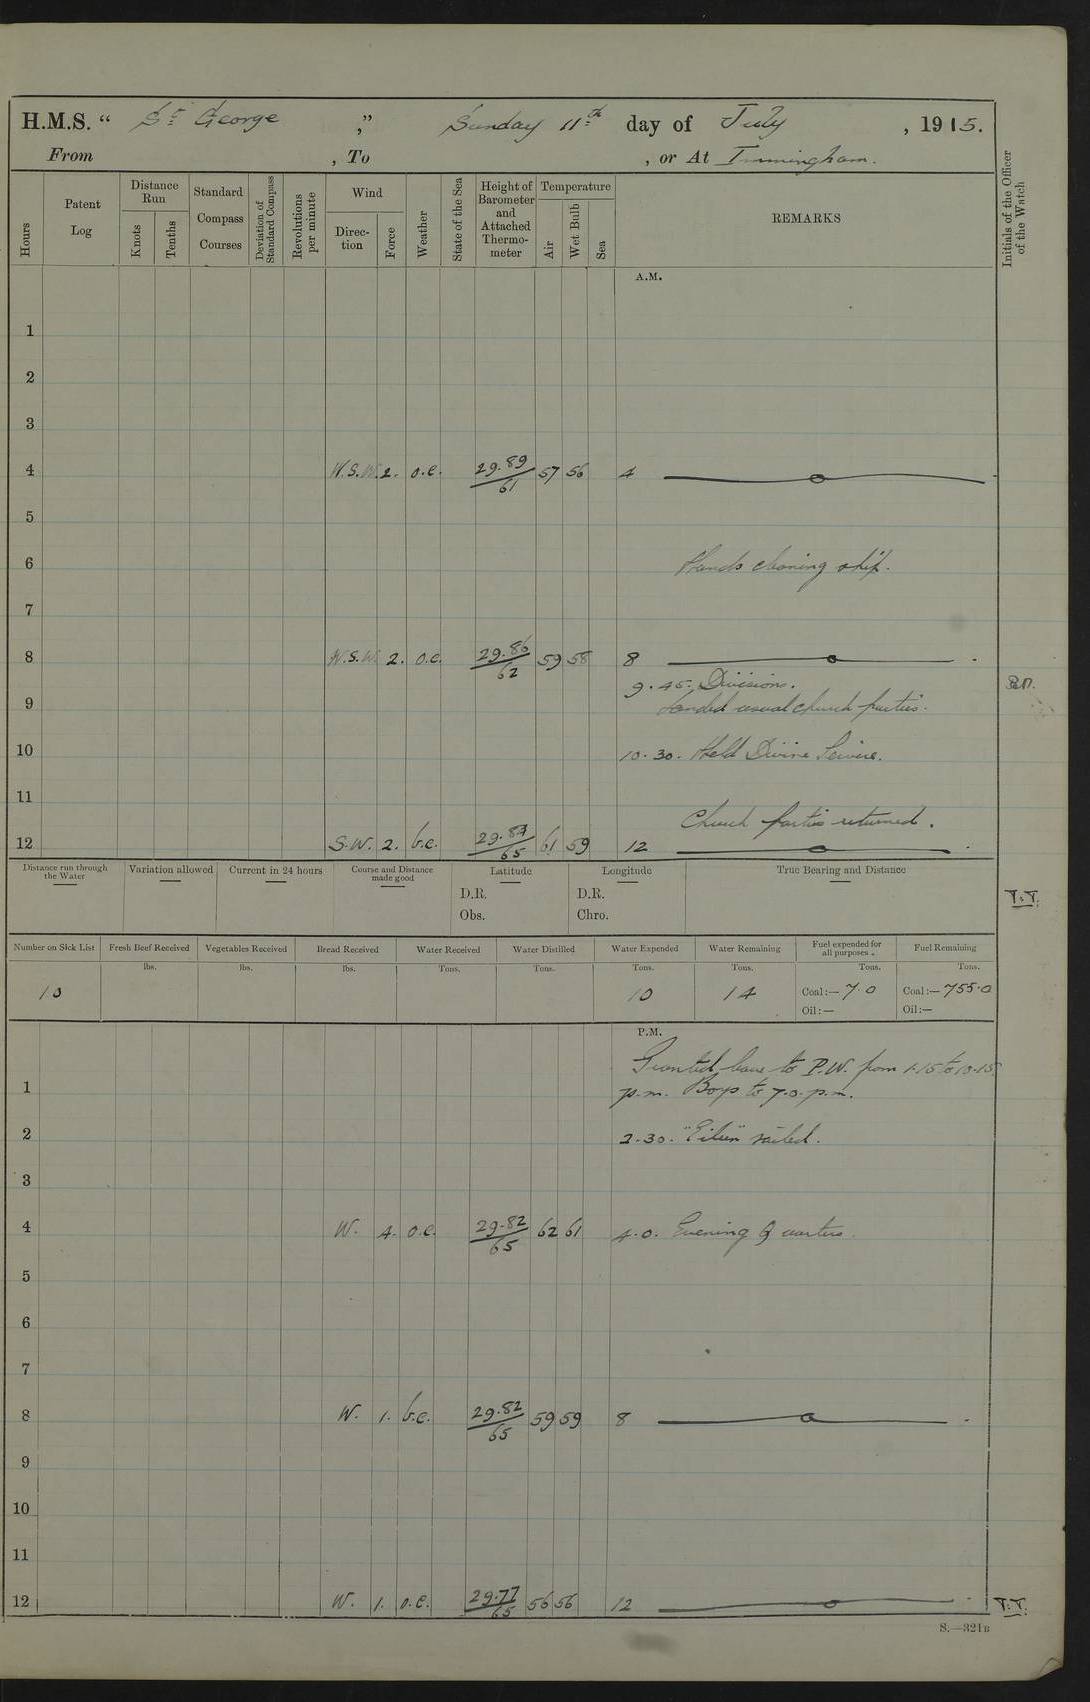 H.M.S. “ St. George ,” Sunday 11th day of July , 1915.
From , To , or At Immingham.
Hours
Patent Log
Distance Run
Knots
Tenths
Standard Compass Courses
Deviation of Standard Compass
Revolutions per minute
Wind
Direction
Force
Weather
State of the Sea
Height of Barometer and Attached Thermometer
Temperature
Air
Wet Bulb
Sea
REMARKS
Initials of the Officer of the Watch
A.M.
1
2
3
4 W.S.W. 2. o.c. 29.89/61 57 56 4
5
6 Hands cleaning ship.
7
8 W.S.W. 2. o.c. 29.86/62 59 58 8
9.45. Divisions.
9 Landed usual church parties.
10 10.30. Held Divine Service.
11
Church parties returned.
12 S.W. 2. b.c. 29.84/65 61 59 12
Distance run through the Water
Variation allowed
Current in 24 hours
Course and Distance made good
Latitude
D.R.
Obs.
Longitude
D.R.
Chro.
True Bearing and Distance
T.T.
Number on Sick List
Fresh Beef Received
Vegetables Received
Bread Received
Water Received
Water Distilled
Water Expended
Water Remaining
Fuel expended for all purposes.
Fuel Remaining
lbs. lbs. lbs. Tons. Tons. Tons. Tons. Tons. Tons.
10 10 14 Coal:— 7.0 Coal:— 755.0
Oil:— Oil:—
P.M.
Granted leave to P.W. from 1.15 to 10.15
1 p.m. Boys to 7.0. p.m.
2 2.30. sailed.
3
4 W. 4. o.c. 29.82/65 62 61 4.0. Evening Quarters.
5
6
7
8 W. 1. b.c. 29.82/65 59 59 8
9
10
11
12 W. 1. o.c. 29.77/65 56 56 12 T.T.
S.—321B